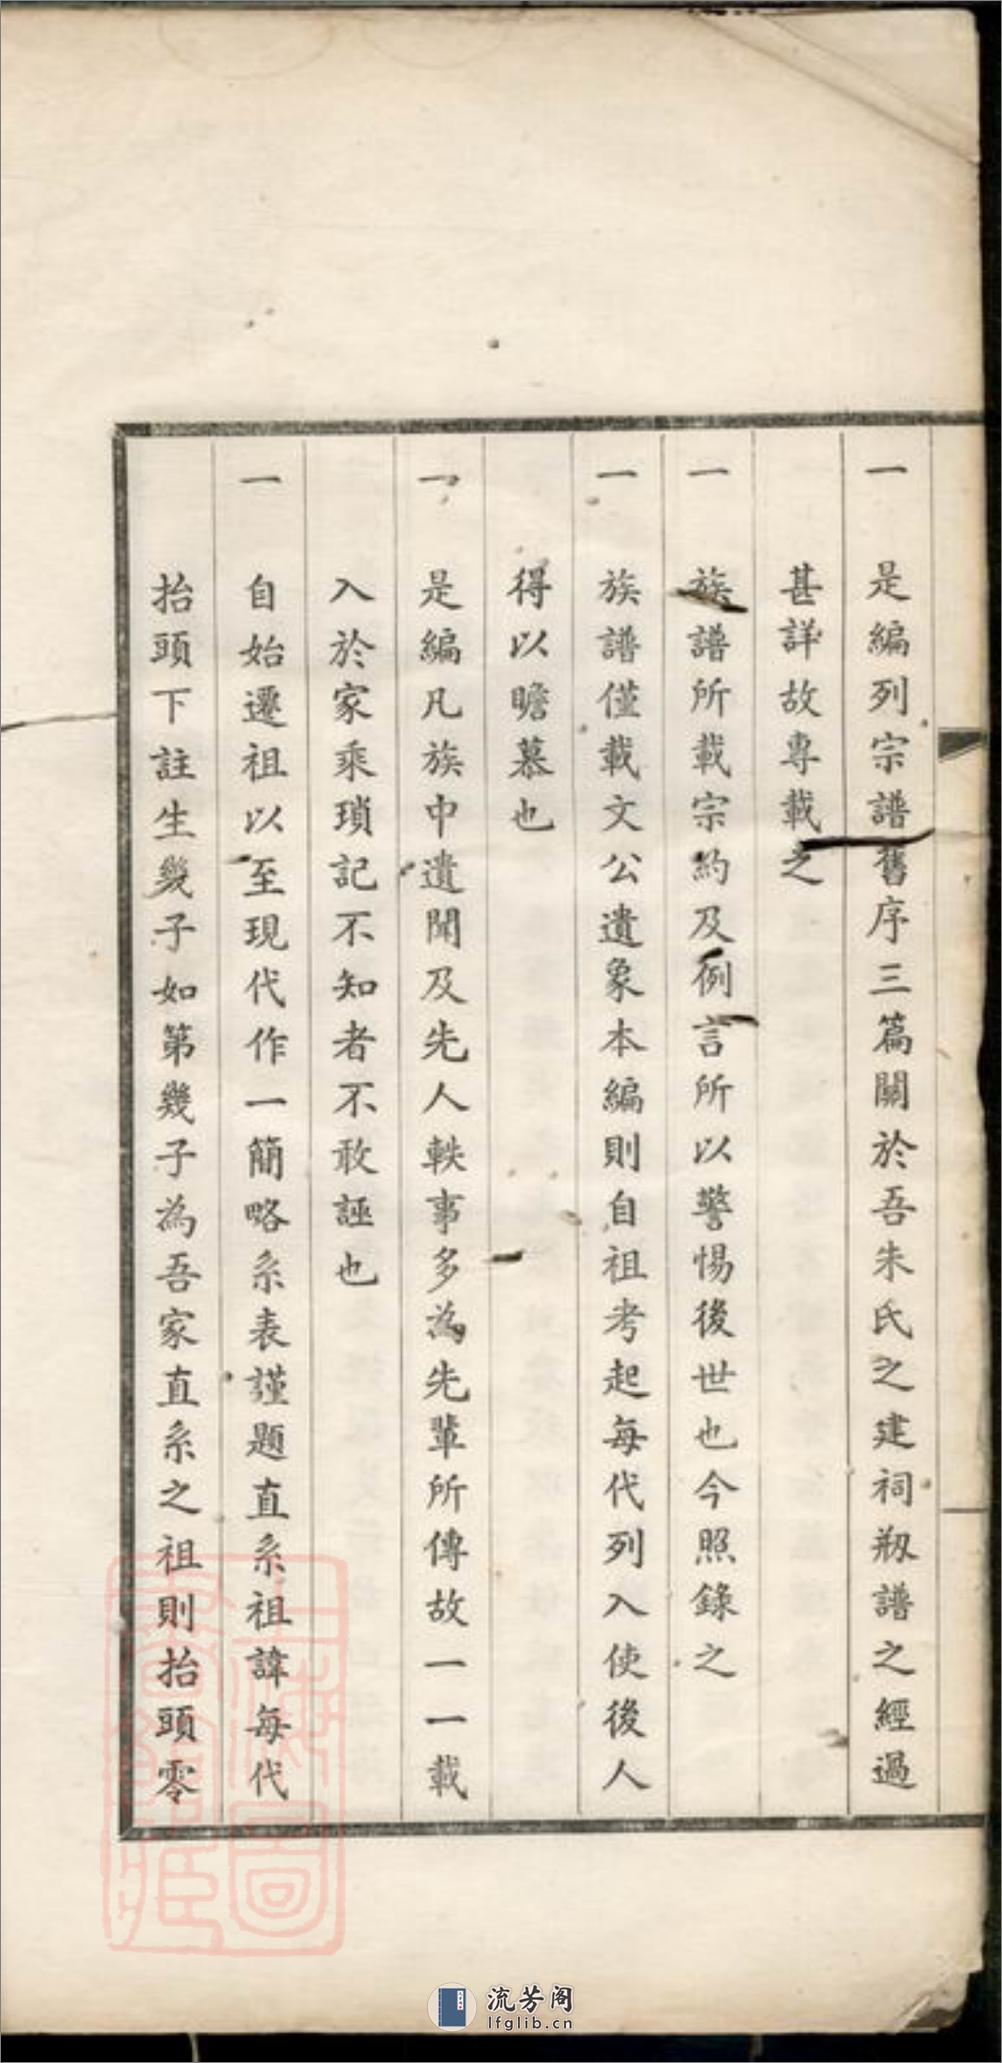 一　是編列宗譜舊序三篇關於吾朱氏之建祠剏譜之經過
甚詳故專載之
一　族譜所載宗約及例言所以警惕後世也今照錄之
一　族譜僅載文公遺象本編則自祖考起每代列入使後人
得以瞻慕也
一　是編凡族中遺聞及先人軼事多為先輩所傳故一一載
入於家乘瑣記不知者不敢誣也
一　自始遷祖以至現代作一簡略系表謹題直系祖諱每代
抬頭下註生幾子如第幾子為吾家直系之祖則抬頭零
上海圖書館藏
流芳阁
lfglib.cn